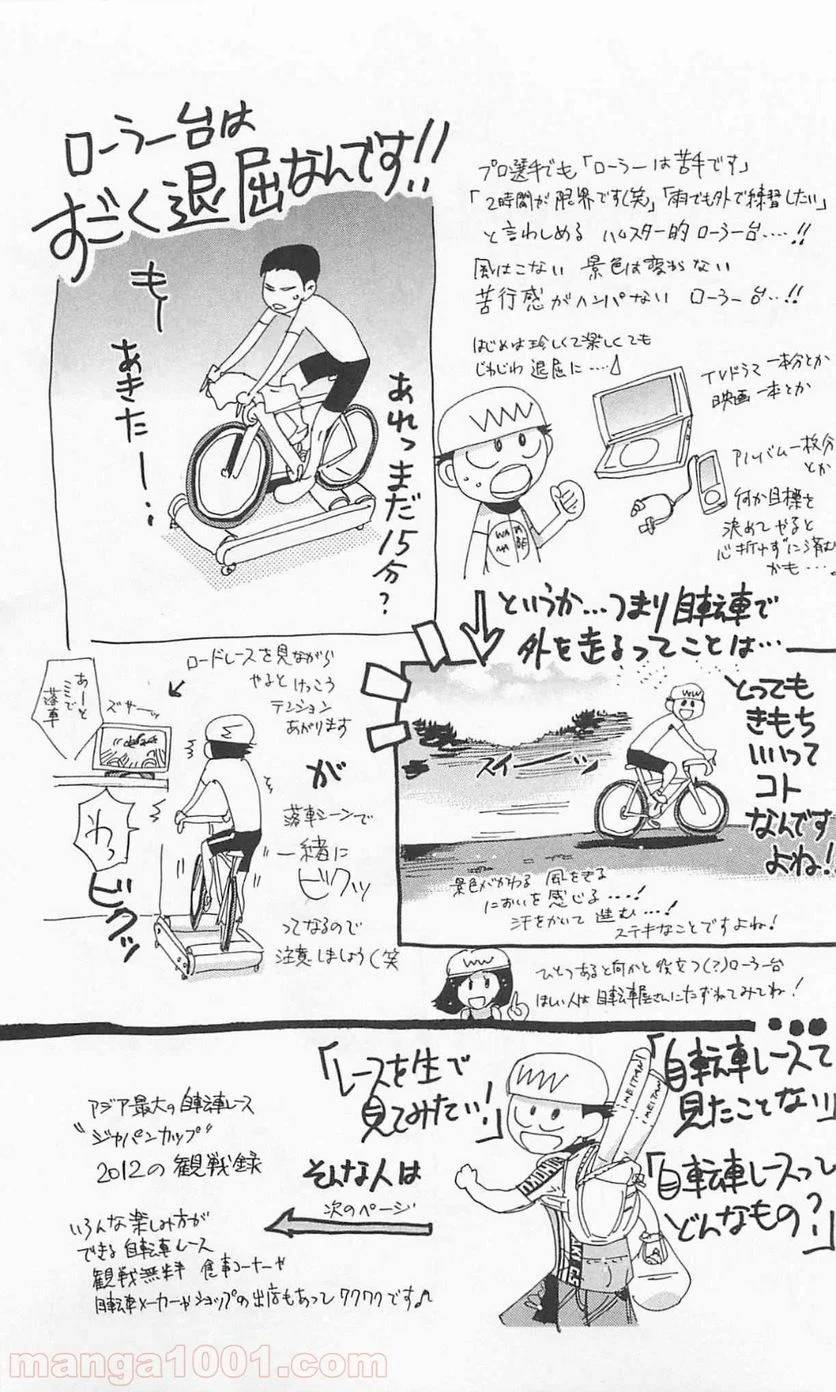 ローラー台は
すごく退屈なんです!!
もー
あきたー!
あれっまだ15分?
プロ選手でも「ローラーは苦手です」
「2時間が限界です(笑)」「雨でも外で練習したい」
と言わしめる ハムスター的 ローラー台‥‥!!
風はこない 景色は変わらない
苦行感がハンパない ローラー台‥!!
はじめは珍しくて楽しくても
じわじわ 退屈に‥‥
TVドラマ一本分とか
映画一本とか
アルバム一枚分
とか
何か目標を
決めてやると
心折れずに済む
かも‥‥。
というか…つまり自転車で
外を走るってことは…
とっても
きもち
いいって
コト
なんです
よね!!
スイーッ
景色がかわる 風をきる
においを感じる‥‥!
汗をかいて 進む‥!
ステキなことですよね!
ロードレースを見ながら
やると けっこう
テンション
あがります
が
落車シーンで
一緒に
ビクッ
ってなるので
注意しましょう(笑
あーと
ここで
落車
ズサーッ
わっ
ビクッ
ひとつあると何かと役立つ(?)ローラー台
ほしい人は自転車屋さんにたずねてみてね!
「自転車レースって
見たことない」
「レースを生で
見てみたい!」
「自転車レースって
どんなもの?」
そんな人は
次のページ
アジア最大の自転車レース
“ジャパンカップ”
2012の観戦録
いろんな楽しみ方が
できる自転車レース
観戦無料 食事コーナーや
自転車メーカーやショップの出店もあってワクワクです♪
manga1001.com